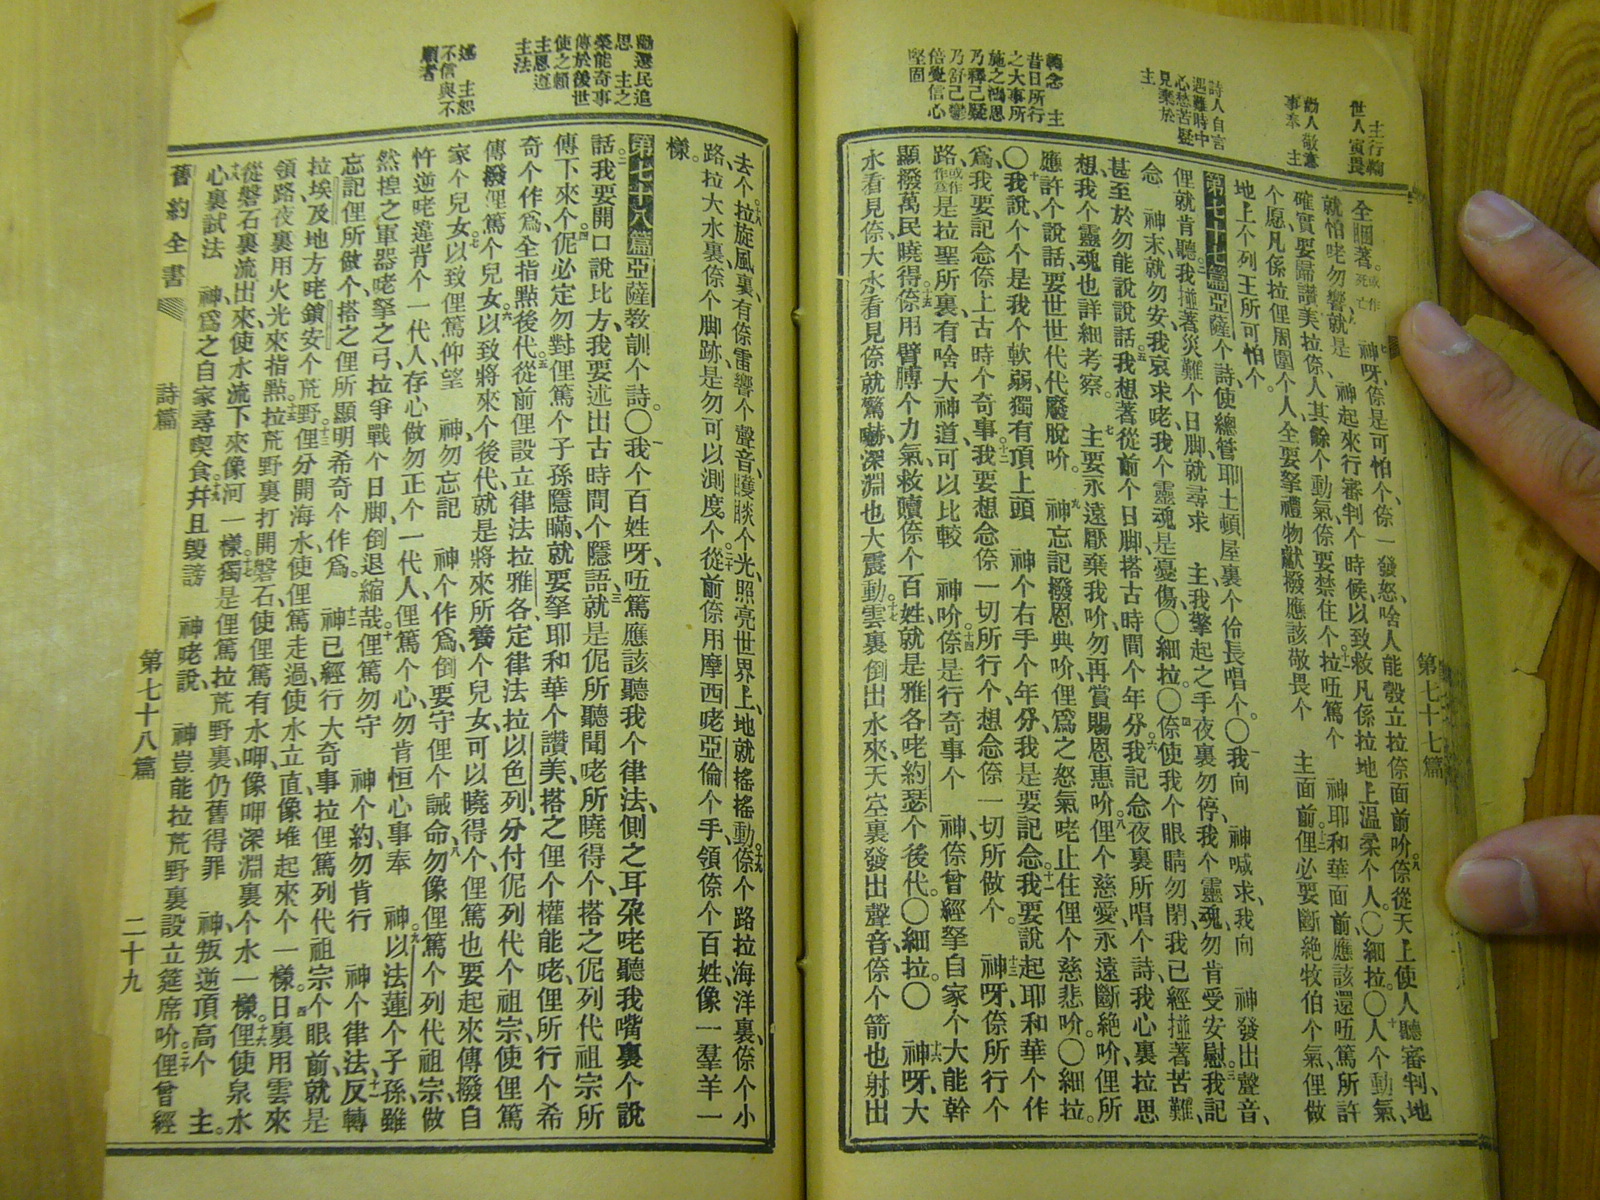 主行輪
世人寅畏
勸人敬畏
事奉　主
詩人自言
遇難時中
心愁苦疑
見棄於
主
轉念　主
昔日所行
之大事所
施之鴻恩
乃釋己疑
乃舒己鬱
倍覺信心
堅固
全睏著或作死亡神呀倷是可怕个倷一發怒啥人能彀立拉倷面前吤倷從天上使人聽審判地
就怕咾勿響就是　神起來行審判个時候以致救凡係拉地上溫柔个人〇細拉〇人个動氣
確實要歸讚美拉倷人其餘个動氣倷要禁住个拉伍篤个　神耶和華面前應該還伍篤所許
个愿凡係拉俚周圍个人全要拏禮物獻撥應該敬畏个　主面前俚必要斷絕牧伯个氣俚做
地上个列王所可怕个
第七十七篇亞薩个詩使總管耶土頓屋裏个伶長唱个〇我向　神喊求我向　神發出聲音
俚就肯聽我我碰著災難个日脚就尋求　主我擎起之手夜裏勿停我个靈魂勿肯受安慰我記
念　神末就勿安我哀求咾我个靈魂是憂傷〇細拉〇倷使我个眼睛勿閉我已經碰著苦難
甚至於勿能說說話我想著從前个日脚搭古時間个年分我記念夜裏所唱个詩我心裏拉思
想我个靈魂也詳細考察　主要永遠厭棄我吤勿再賞賜恩惠吤俚个慈愛永遠斷絕吤俚所
應許个說話要世世代代廢脫吤　神忘記撥恩典吤俚爲之怒氣咾止住俚个慈悲吤〇細拉
〇我說个个是我个軟弱獨有頂上頭　神个右手个年分我是要記念我要說起耶和華个作
爲我要記念倷上古時个奇事我要想念倷一切所行个想念倷一切所做个　神呀倷所行个
路或作作爲是拉聖所裏有啥大神道可以比較　神吤倷是行奇事个　神倷曾經拏自家个大能幹
顯撥萬民曉得倷用臂膊个力氣救贖倷个百姓就是雅各咾約瑟个後代〇細拉〇　神呀大
水看見倷大水看見倷就驚嚇深淵也大震動雲裏倒出水來天空裏發出聲音倷个箭也射出
第七十七篇
勸選民追
思　主之
榮能奇事
傳於後世
使之賴
主恩遵
主法
述　主恕
不信與不
順者
去个拉旋風裏有倷雷響个聲音个光照亮世界上地就搖搖動倷个路拉海洋裏倷个小
路拉大水裏倷个脚跡是勿可以測度个從前倷用摩西咾亞倫个手領倷个百姓像一羣羊一
樣
第七十八篇亞薩敎訓个詩〇我个百姓呀伍篤應該聽我个律法側之耳朶咾聽我嘴裏个說
話我要開口說比方我要述出古時間个隱語就是伲所聽聞咾所曉得个搭之伲列代祖宗所
傳下來个伲必定勿對俚篤个子孫隱瞞就要拏耶和華个讚美搭之俚个權能咾俚所行个希
奇个作爲全指點後代從前俚設立律法拉雅各定律法拉以色列分付伲列代个祖宗使俚篤
傳撥俚篤个兒女以致將來个後代就是將來所養个兒女可以曉得个俚篤也要起來傳撥自
家个兒女以致俚篤仰望　神勿忘記　神个作爲倒要守俚个誡命勿像俚篤个列代祖宗做
忤逆咾違背个一代人存心做勿正个一代人俚篤个心勿肯恒心事奉　神以法蓮个子孫雖
然揹之軍器咾拏之弓拉爭戰个日脚倒退縮哉俚篤勿守　神个約勿肯行　神个律法反轉
忘記俚所做个搭之俚所顯明希奇个作爲　神已經行大奇事拉俚篤列代祖宗个眼前就是
拉埃及地方咾鎖安个荒野俚分開海水使俚篤走過使水立直像堆起來个一樣日裏用雲來
領路夜裏用火光來指點拉荒野裏打開磐石使俚篤有水呷像呷深淵裏个水一樣俚使泉水
從磐石裏流出來使水流下來像河一樣獨是俚篤拉荒野裏仍舊得罪　神叛逆頂高个　主
心裏試法　神爲之自家尋喫食并且毀謗　神咾說　神豈能拉荒野裏設立筵席吤俚曾經
舊約全書　詩篇　第七十八篇　二十九